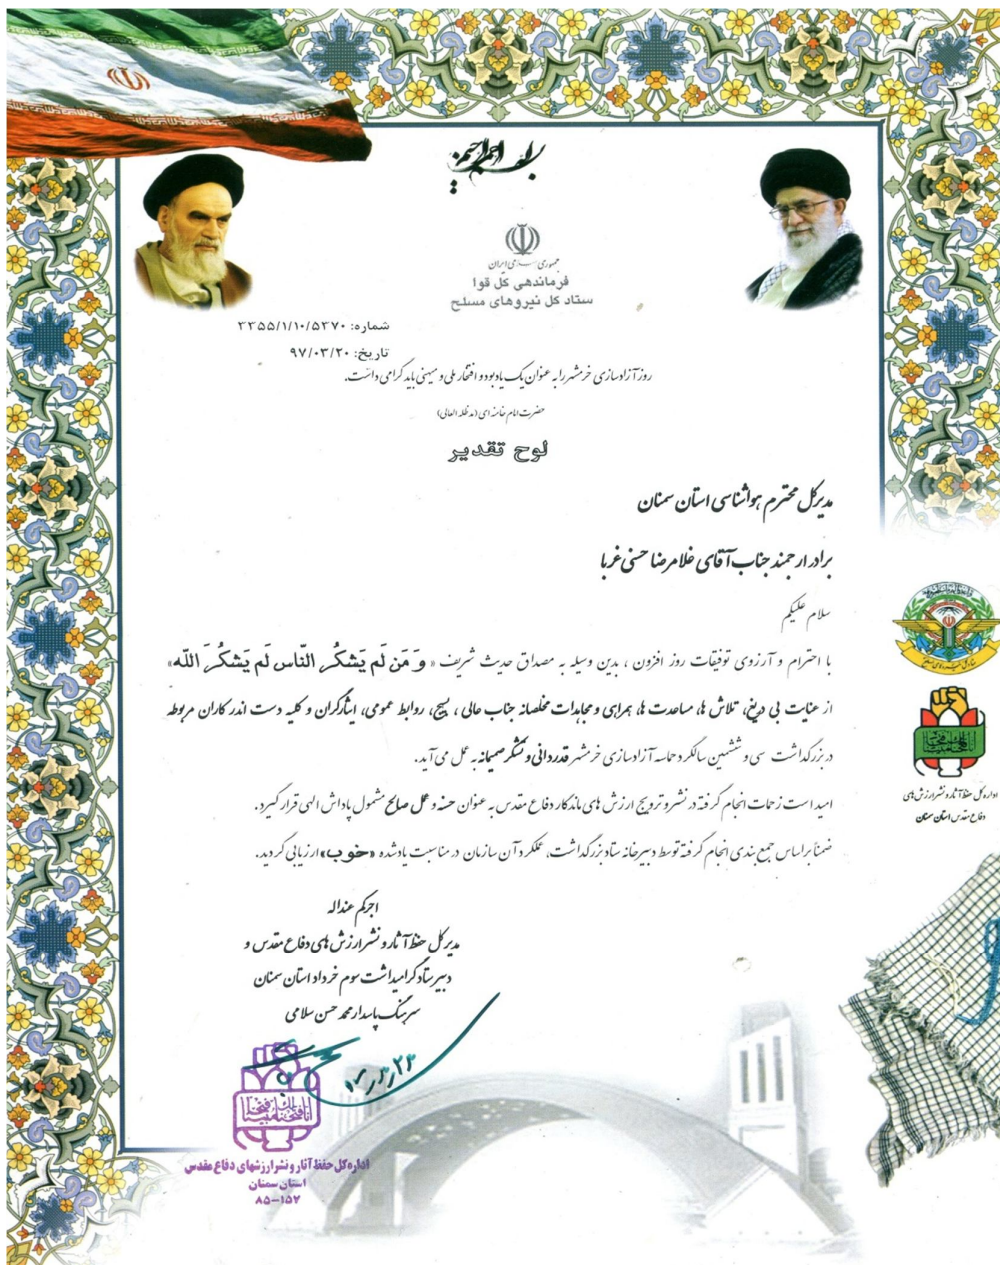 بسم الله الرحمن الرحیم
جمهوری اسلامی ایران
فرماندهی کل قوا
ستاد کل نیروهای مسلح
شماره: ۳۳۵۵/۱/۱۰/۵۳۷۰
تاریخ: ۹۷/۰۳/۲۰
روز آزادسازی خرمشهر را به عنوان یک یادبود و افتخار ملی و میهنی باید گرامی داشت.
حضرت امام خامنه ای (مدظله العالی)
لوح تقدیر
مدیرکل محترم هواشناسی استان سمنان
برادر ارجمند جناب آقای غلامرضا حسنی غربا
سلام علیکم
با احترام و آرزوی توفیقات روز افزون ، بدین وسیله به مصداق حدیث شریف « وَ مَن لَم یَشکُرِ النّاس لَم یَشکُرَ الله»
از عنایت بی دریغ، تلاش ها، مساعدت ها، همراهی و مجاهدات مخلصانه جناب عالی ، بسیج، روابط عمومی، ایثارگران و کلیه دست اندرکاران مربوطه
در بزرگداشت سی و ششمین سالگرد حماسه آزادسازی خرمشهر قدردانی و تشکر صمیمانه به عمل می آید.
امید است زحمات انجام گرفته در نشر و ترویج ارزش های ماندگار دفاع مقدس به عنوان حسنه و عمل صالح مشمول پاداش الهی قرار گیرد.
ضمناً براساس جمع بندی انجام گرفته توسط دبیرخانه ستاد بزرگداشت، عملکرد آن سازمان در مناسبت یاد شده «خوب» ارزیابی گردید.
اجرکم عندالله
مدیرکل حفظ آثار و نشر ارزش های دفاع مقدس و
دبیر ستاد گرامیداشت سوم خرداد استان سمنان
سرهنگ پاسدار محمد حسن سلامی
انا فتحنا لک فتحا مبینا
اداره کل حفظ آثار و نشر ارزشهای دفاع مقدس
استان سمنان
۸۵-۱۵۲
انا فتحنا لک فتحا مبینا
اداره کل حفظ آثار و نشر ارزش های
دفاع مقدس استان سمنان